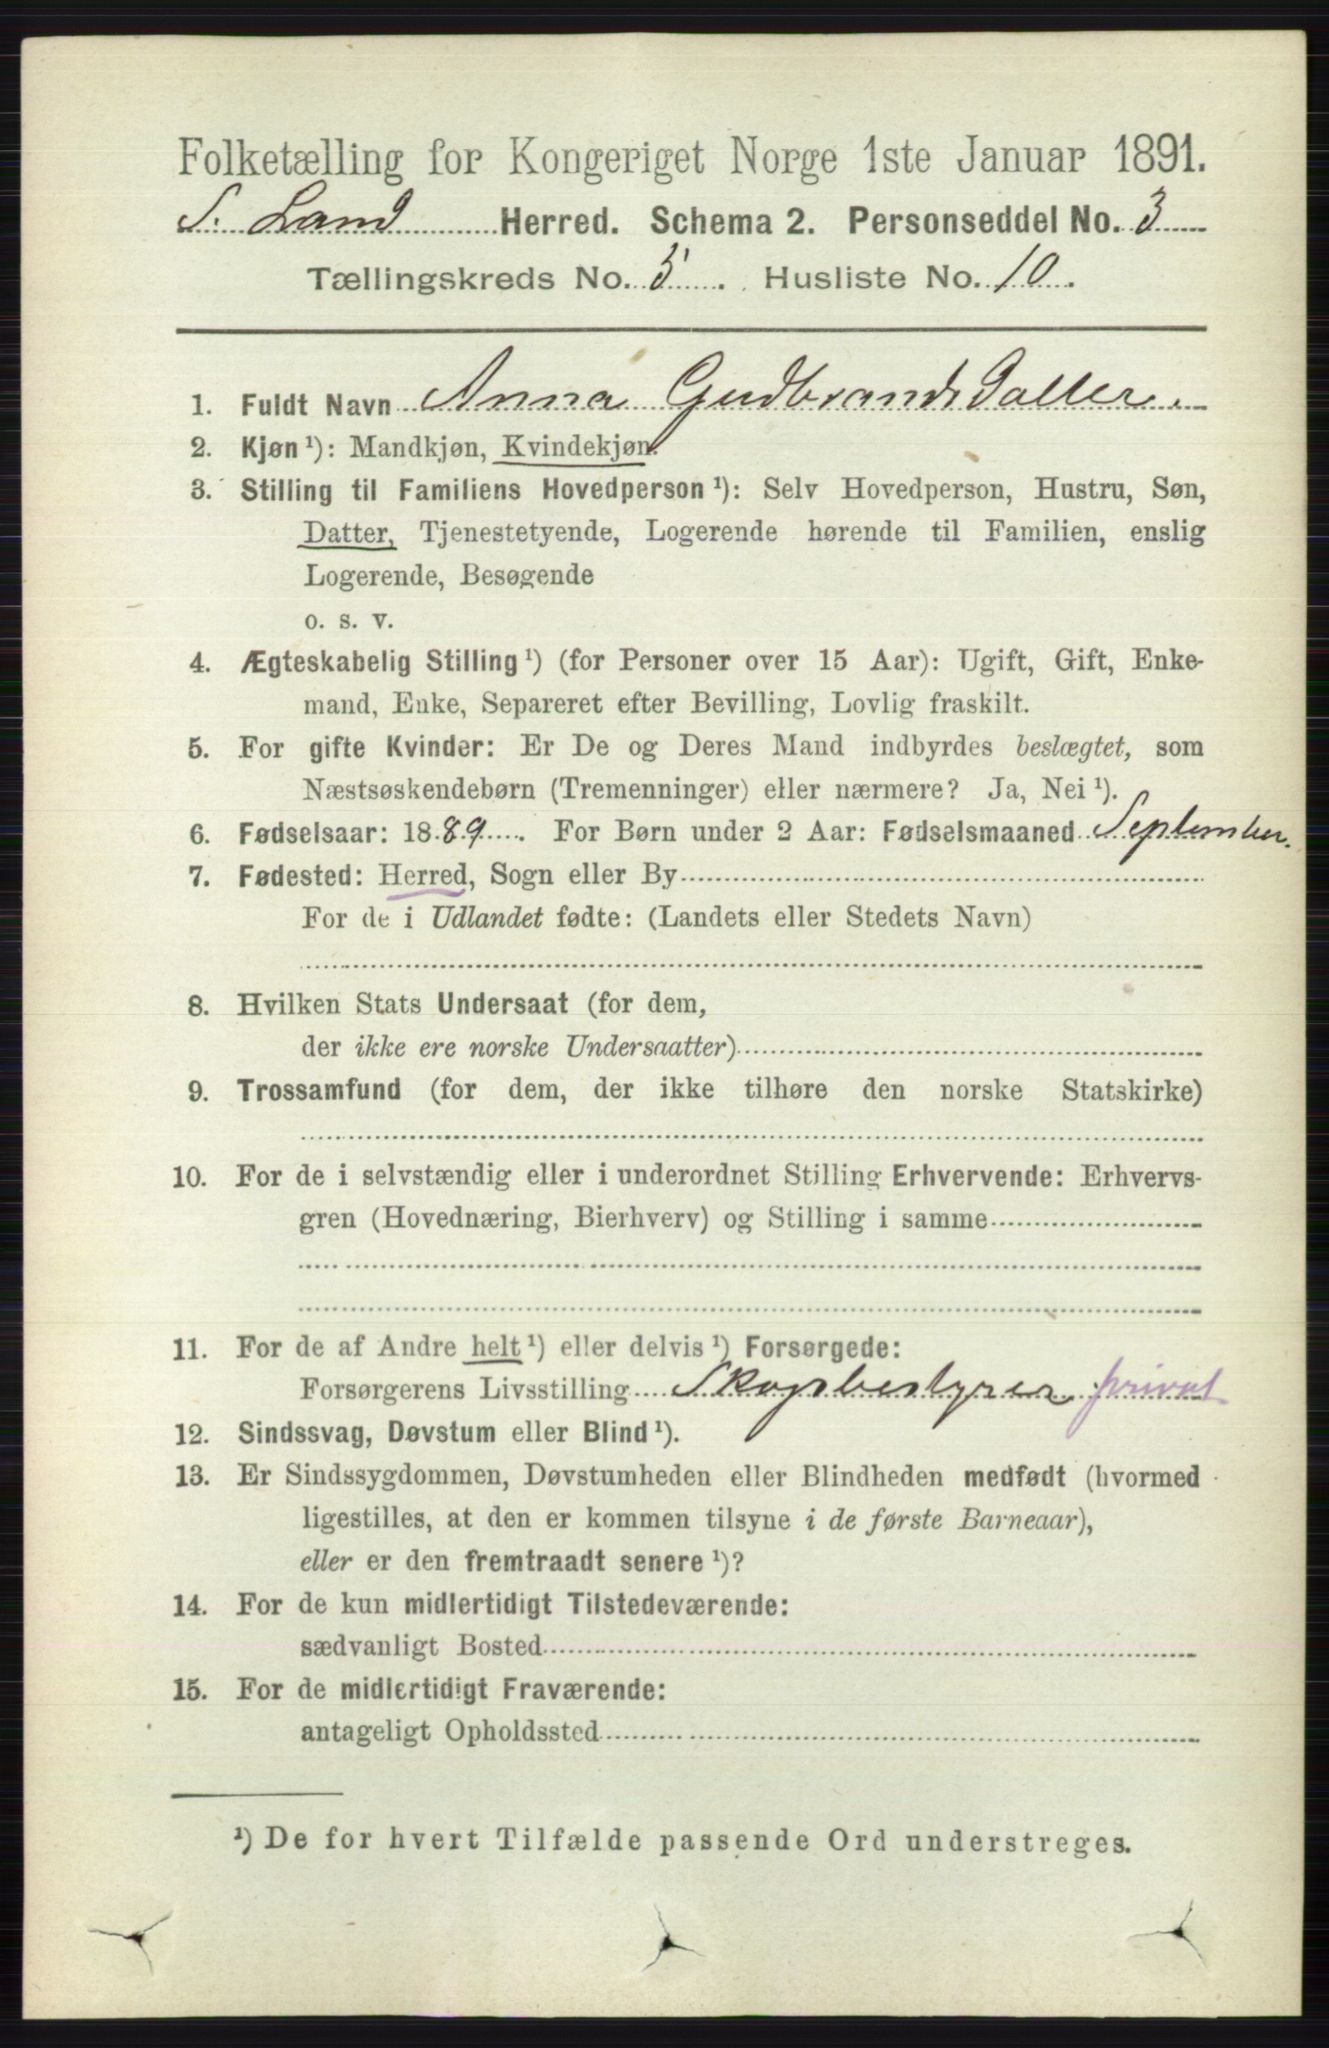 Folketælling for Kongeriget Norge 1ste Januar 1891.
S. Land Herred. Schema 2. Personseddel No. 3
Tællingskreds No. 5. Husliste No. 10.
1. Fuldt Navn Anna Gudbrandsdatter.
2. Kjøn ¹): Mandkjøn, Kvindekjøn.
3. Stilling til Familiens Hovedperson ¹): Selv Hovedperson, Hustru, Søn,
Datter, Tjenestetyende, Logerende hørende til Familien, enslig
Logerende, Besøgende
o. s. v.
4. Ægteskabelig Stilling ¹) (for Personer over 15 Aar): Ugift, Gift, Enke-
mand, Enke, Separeret efter Bevilling, Lovlig fraskilt.
5. For gifte Kvinder: Er De og Deres Mand indbyrdes beslægtet, som
Næstsøskendebørn (Tremenninger) eller nærmere? Ja, Nei ¹).
6. Fødselsaar: 1889. For Børn under 2 Aar: Fødselsmaaned September.
7. Fødested: Herred, Sogn eller By
For de i Udlandet fødte: (Landets eller Stedets Navn)
8. Hvilken Stats Undersaat (for dem,
der ikke ere norske Undersaatter)
9. Trossamfund (for dem, der ikke tilhøre den norske Statskirke)
10. For de i selvstændig eller i underordnet Stilling Erhvervende: Erhvervs-
gren (Hovednæring, Bierhverv) og Stilling i samme
11. For de af Andre helt ¹) eller delvis ¹) Forsørgede:
Forsørgerens Livsstilling Skogsbestyrer privat
12. Sindssvag, Døvstum eller Blind ¹).
13. Er Sindssygdommen, Døvstumheden eller Blindheden medfødt (hvormed
ligestilles, at den er kommen tilsyne i de første Barneaar),
eller er den fremtraadt senere ¹)?
14. For de kun midlertidigt Tilstedeværende:
sædvanligt Bosted
15. For de midlertidigt Fraværende:
antageligt Opholdssted
¹) De for hvert Tilfælde passende Ord understreges.